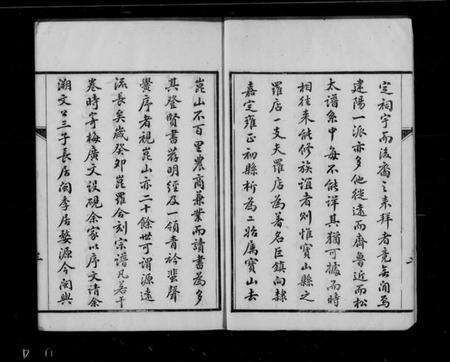 定祠宇而後裔之来拜者竟無聞焉
建陽一派亦多他從遠而齊魯近而松
太譜系中每不能詳其猶可據而時
相往来能修族誼者則惟寶山縣之
羅店一支夫羅店為著名巨鎮向隸
嘉定雍正初縣析為二始屬寶山去
崑山不百里農商兼業而讀書為多
其登賢書薦明經及一領青衿蜚聲
黌序者視崑山亦二十餘世可謂源遠
流長矣歲癸卯崑羅合刻宗譜凡若干
卷時寄梅廣文設硯余家以序文請余
溯文公三子長居閩季居婺源今閩與